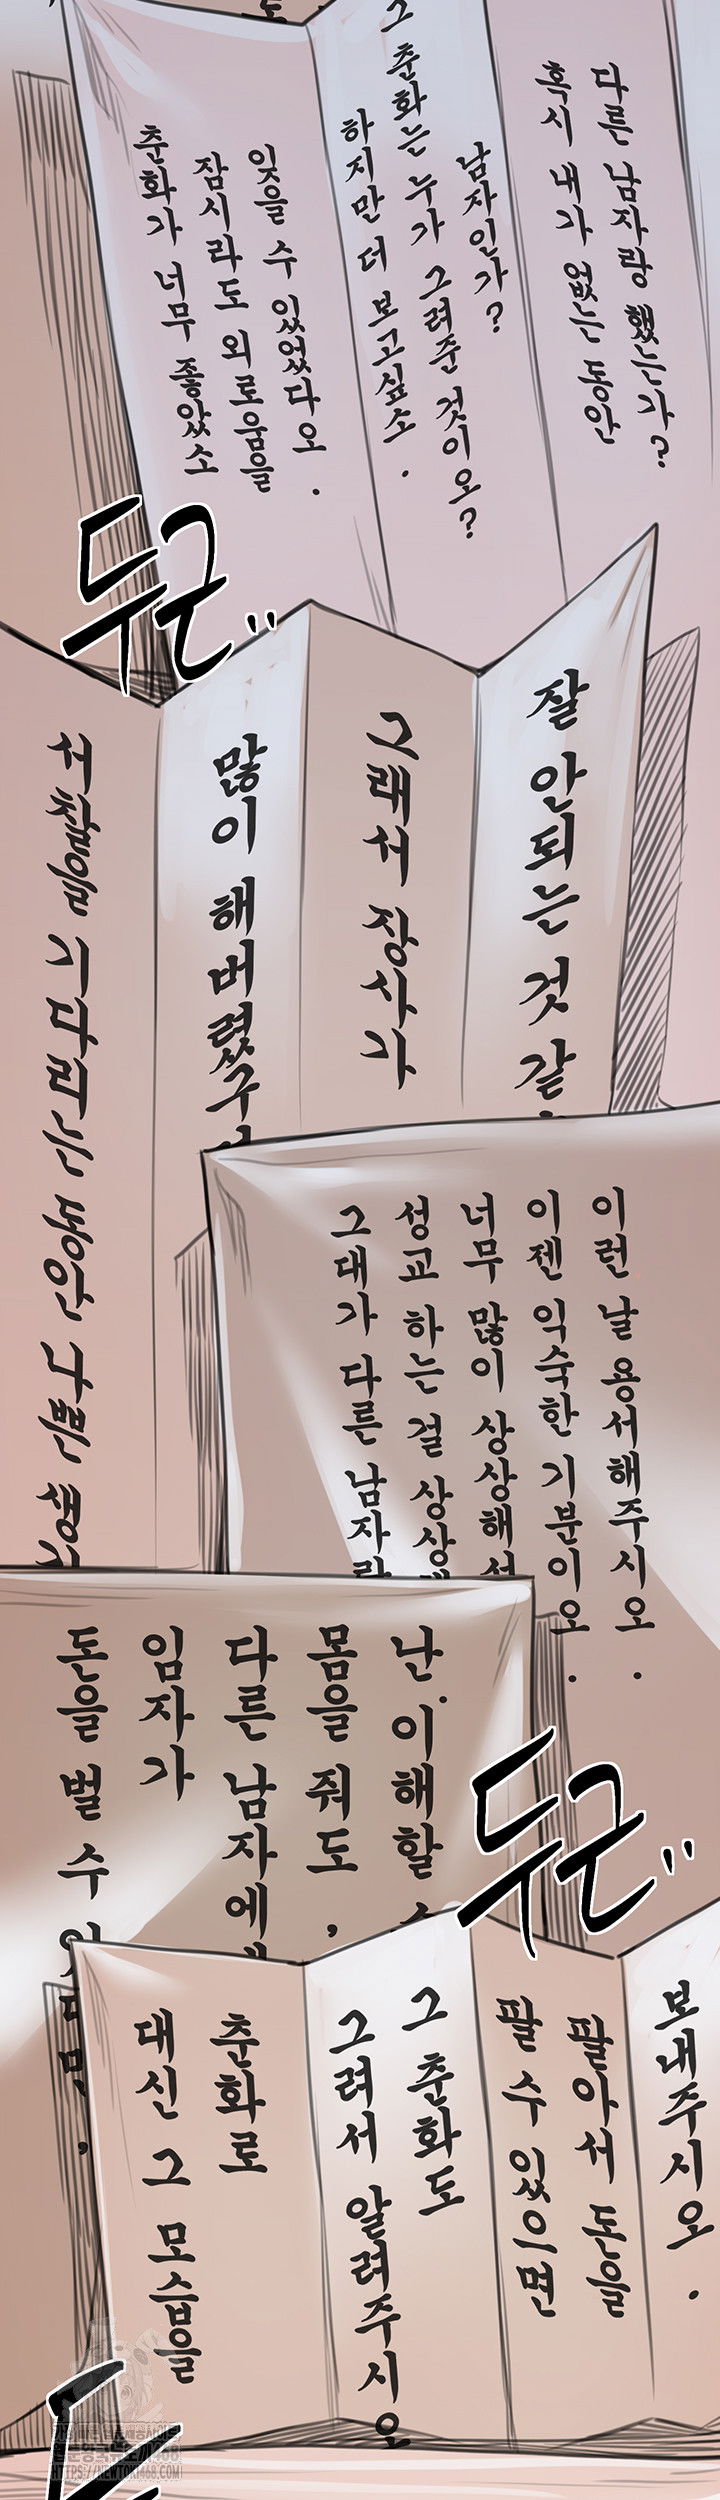 춘화가 너무 좋았소
잠시라도 외로움을
잊을 수 있었다오.
하지만 더 보고싶소.
그 춘화는 누가 그려준 것이오?
남자인가?
혹시 내가 없는 동안
다른 남자랑 했는가?
두근"
서찰을 기다리는 동안 나쁜
많이 해버렸구
그래서 장사가
잘 안되는 것 같
그대가 다른 남자랑
성교 하는 걸 상상
너무 많이 상상해서
이젠 익숙한 기분이오.
이런 날 용서해주시오.
돈을 벌 수 있다면,
임자가
다른 남자에게
몸을 줘도,
난 이해할 수
두근"
대신 그 모습을
춘화로
그려서 알려주시오
그 춘화도
팔 수 있으면
팔아서 돈을
보내주시오.
두
HTTPS://NEWTOKI468